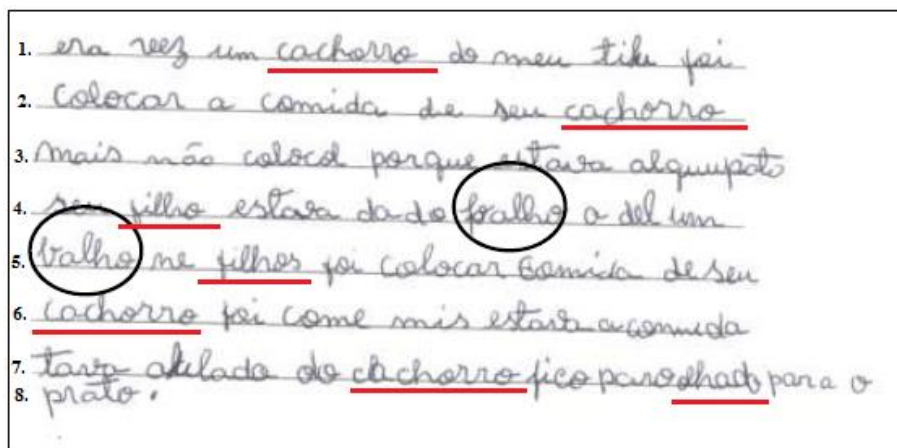 1. era vez um cachorro do meu tiku foi
2. colocar a comida de seu cachorro
3. mais não colocol porque estava alguupato
4. seu filho estava dado foralho o del um
5. balho ne filhos foi colocar comida de seu
6. cachorro foi come mis estava a comuda
7. tava atulada do cachorro fico paro olhado para o
8. prato.